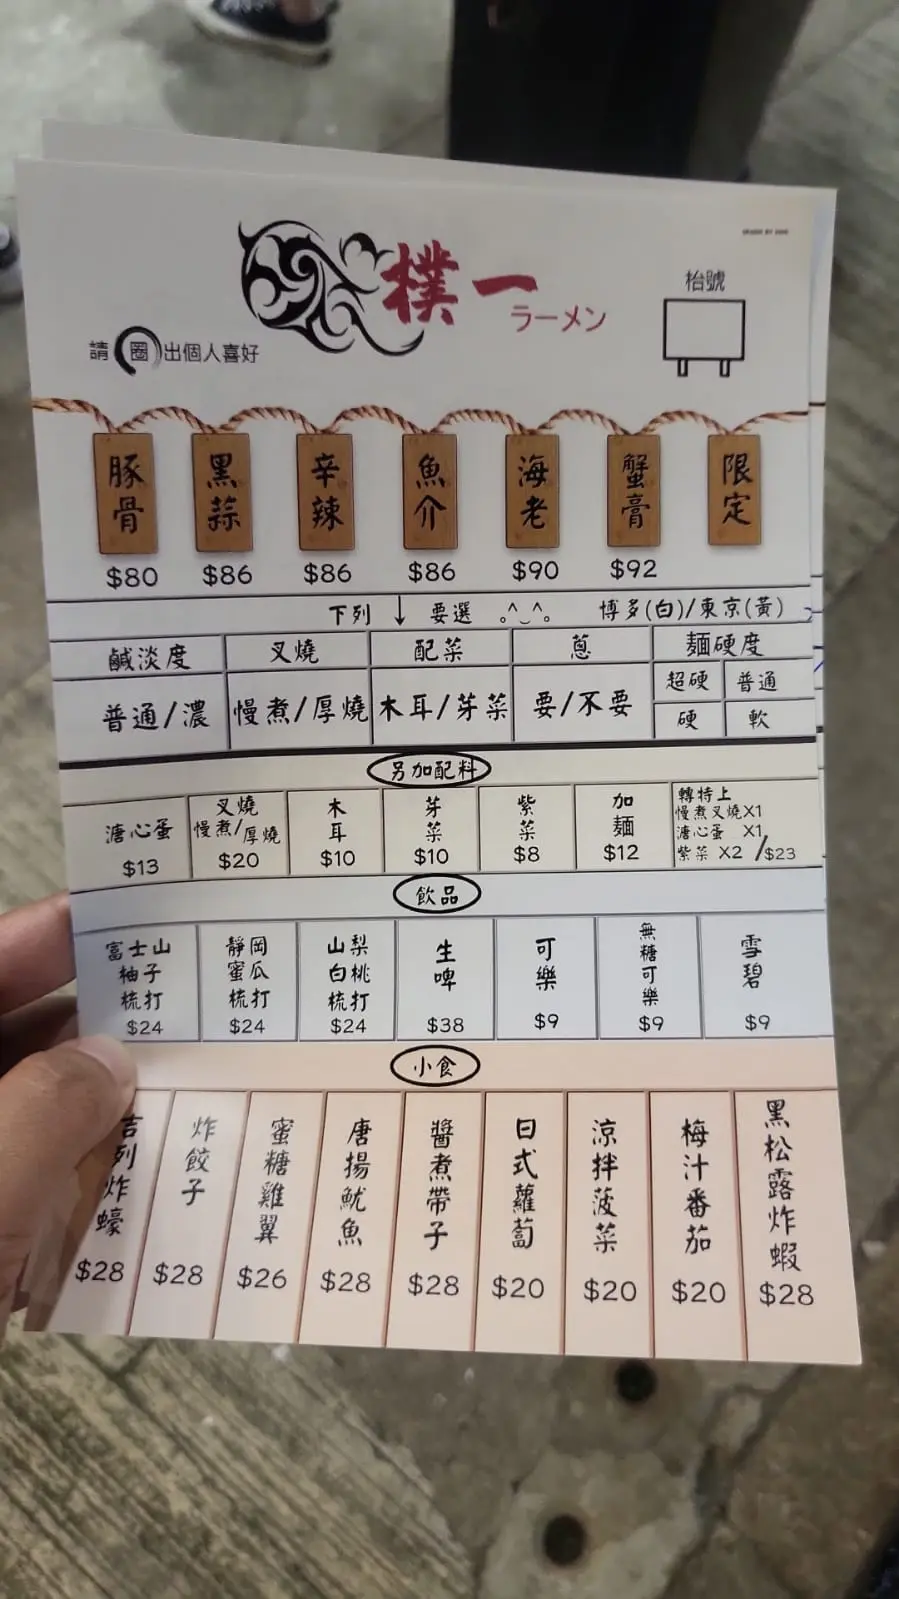 樸一
ラーメン
枱號
請圈出個人喜好
豚骨 黑蒜 辛辣 魚介 海老 蟹膏 限定
$80 $86 $86 $86 $90 $92
下列↓要選 。^‿^。 博多(白)/東京(黃)
鹹淡度 叉燒 配菜 蔥 麵硬度
普通/濃 慢煮/厚燒 木耳/芽菜 要/不要 超硬 普通
硬 軟
另加配料
溏心蛋 $13
叉燒
慢煮/厚燒
$20
木耳 $10
芽菜 $10
紫菜 $8
加麵 $12
轉特上
慢煮叉燒X1
溏心蛋 X1
紫菜 X2 /$23
飲品
富士山柚子梳打 $24
靜岡蜜瓜梳打 $24
山梨白桃梳打 $24
生啤 $38
可樂 $9
無糖可樂 $9
雪碧 $9
小食
吉列炸蠔 $28
炸餃子 $28
蜜糖雞翼 $26
唐揚魷魚 $28
醬煮帶子 $28
日式蘿蔔 $20
涼拌菠菜 $20
梅汁番茄 $20
黑松露炸蝦 $28